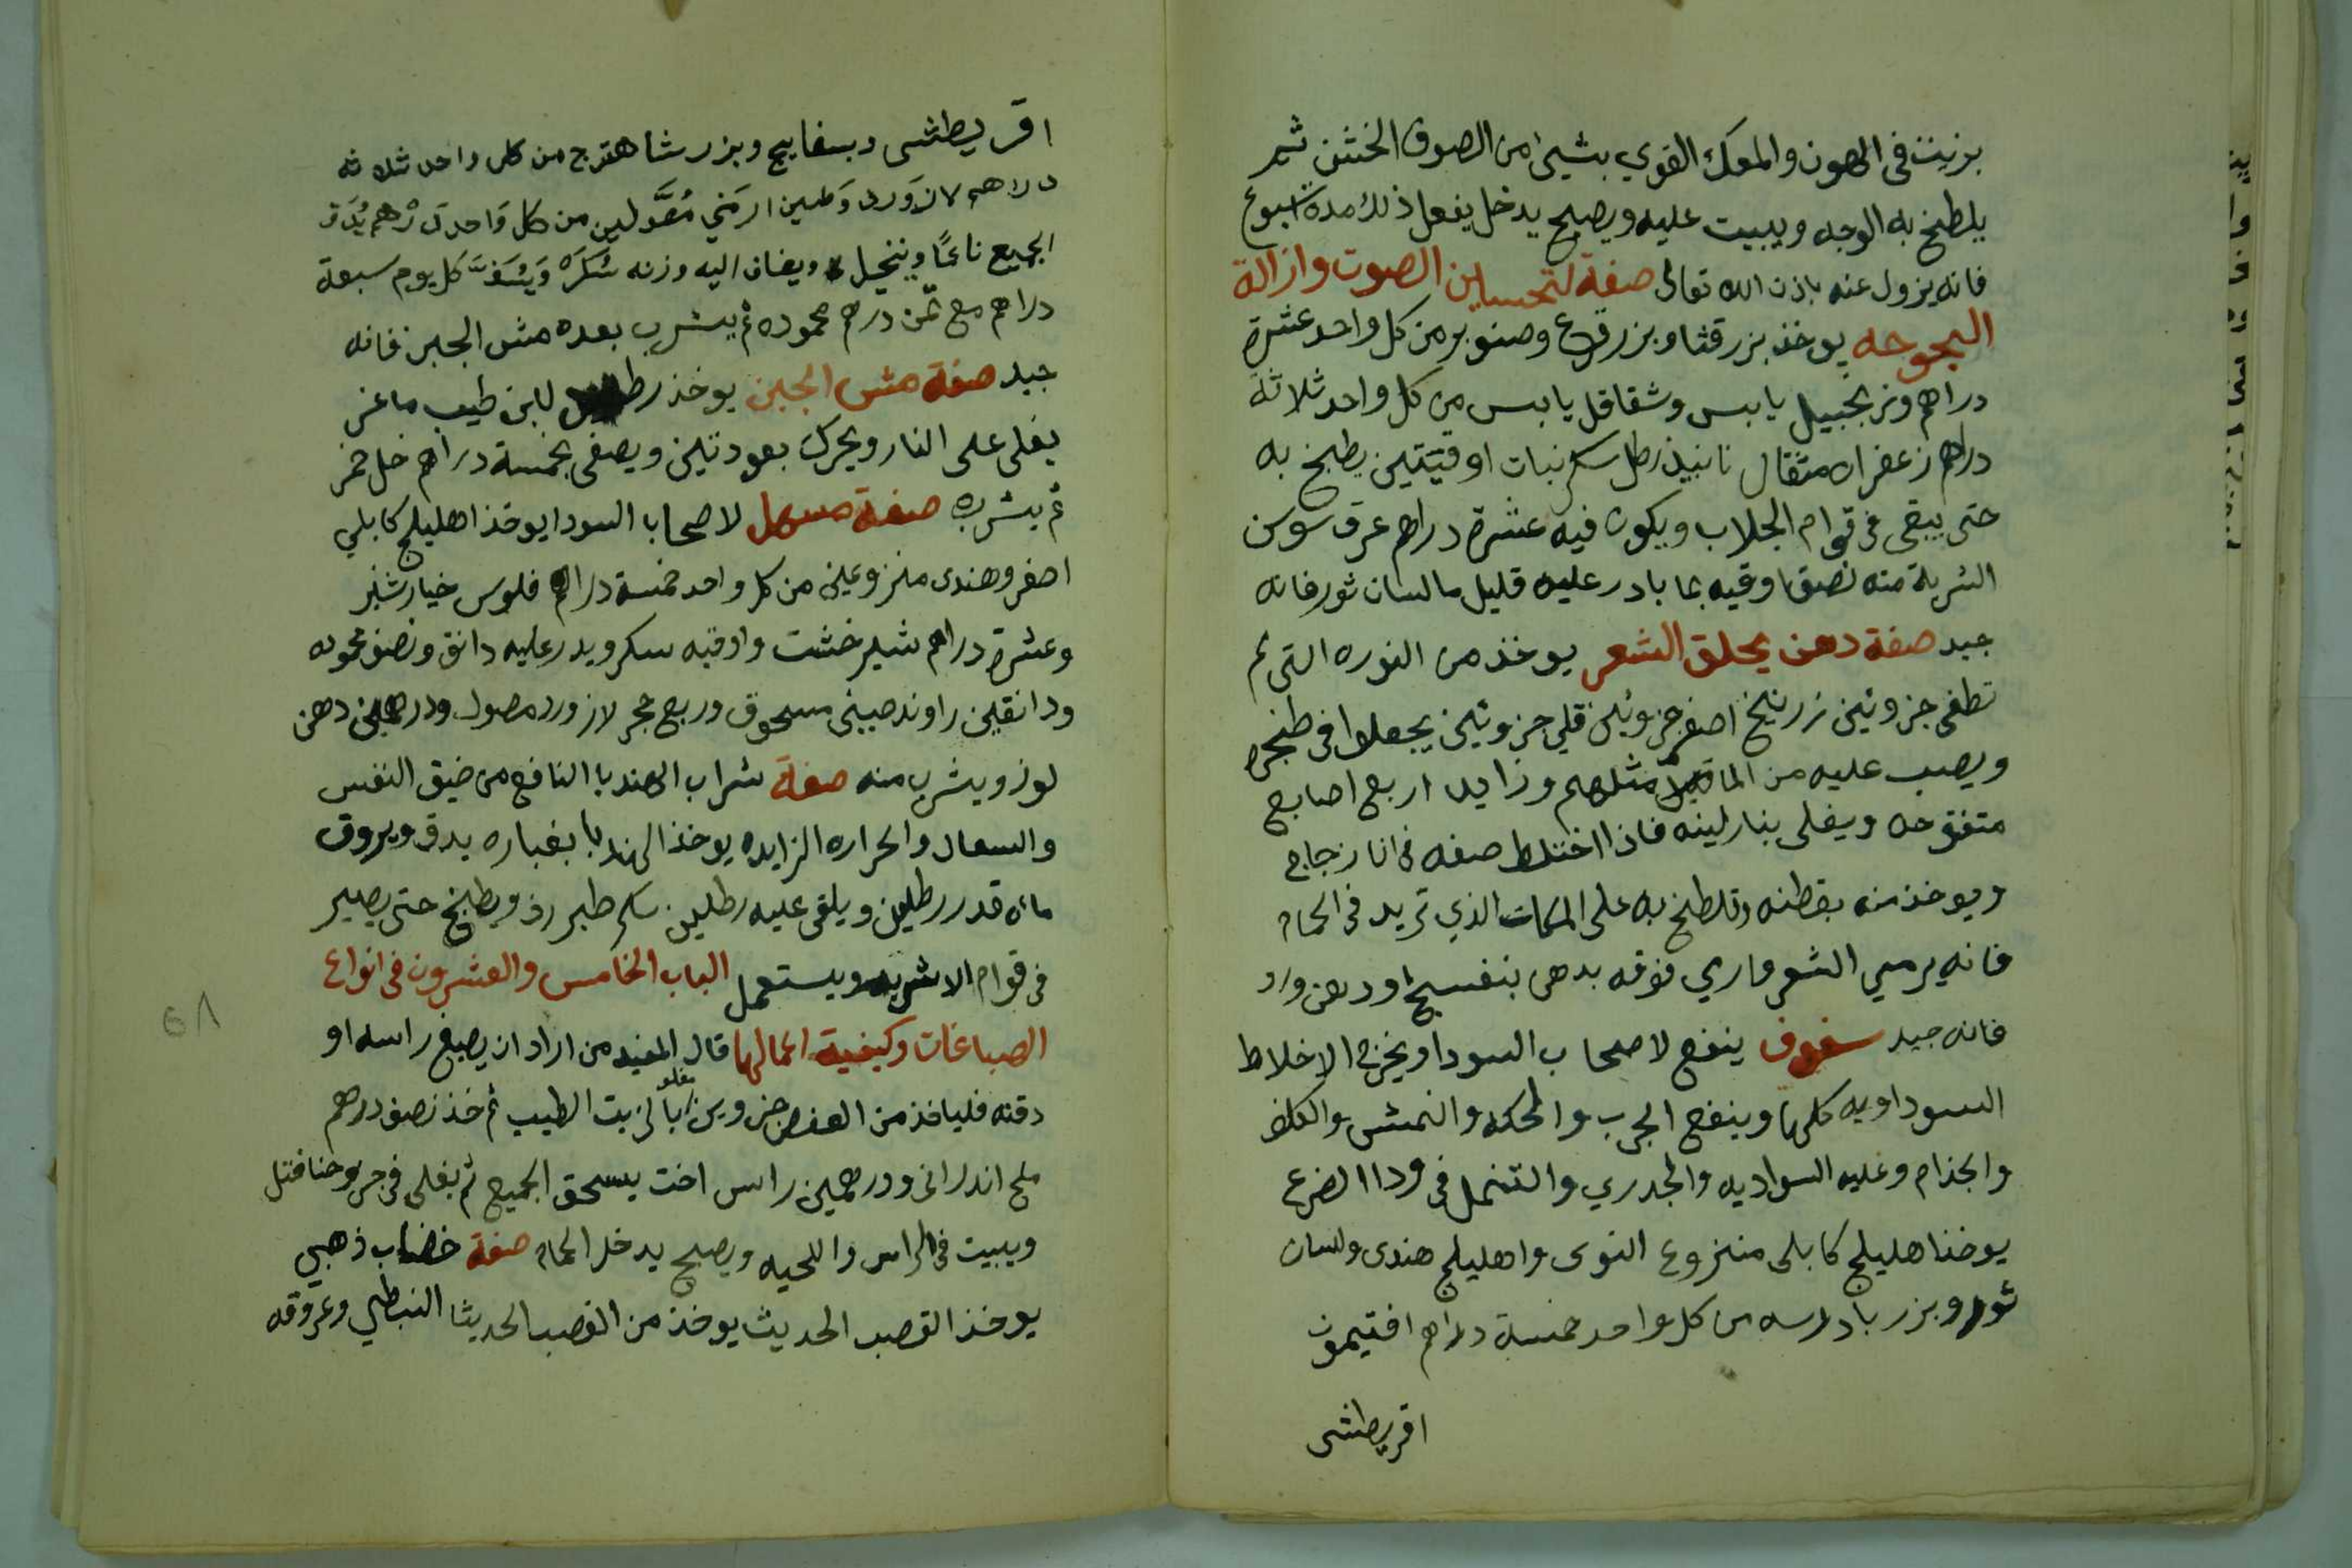 بزيت في الهون والمعك القوي بشيئ من الصوف الخشن ثم
يلطخ به الوجه ويبيت عليه ويصبح يدخل يفعل ذلك مدة اسبوع
فانه يزول عنه باذن الله تعالى صفة لتحسين الصوت وازالة
البحوحه يوخذ بزر قثا وبزر قرع وصنوبر من كل واحد عشرة
دراهم وزنجبيل يابس وشقاقل يابس من كل واحد ثلاثة
دراهم زعفران مثقال نانبيذ رطل سكر نبات اوقيتين يطبخ به
حتى يبقى في قوام الجلاب ويكون فيه عشرة دراهم عرق سوسن
الشربة منه نصف اوقيه بما بادر عليه قليل ما لسان ثور فانه
جيد صفة دهن يحلق الشعر يوخذ من النوره التي لم
تطفى جزوئين زرنيخ اصفر جزوئين قلي جزوئين يجعلوا في طنجره
ويصب عليه من الما مثلهم وزايد اربع اصابع
متفوحه ويغلى بنار لينه فاذا اختلط صفه في انا زجاج
ويوخذ منه بقطنه وتلطخ به على المكان الذي تريد في الحمام
فانه يرمي الشعر واري فوقه بدهن بنفسج اودهن ورد
فانه جيد سفوف ينفع لاصحاب السودا ويخرج الاخلاط
السوداويه كلها وينفع الجرب والحكه والنمش والكلف
والجذام وعليه السواديه والجدري والتنمل في ودا الصرع
يوخذ اهليلج كابلى منزوع النوى واهليلج هندى ولسان
ثور وبزر بادرسه من كل واحد خمسة دراهم افتيمون
اقريطشى
اقريطشى وبسفايج وبزر شاهترج من كل واحد ثلاثه
دراهم لازورد وطين ارمني مغسولين من كل واحد درهم يدق
الجميع ناعمًا وينخيل ويضاف اليه وزنه سكره ويسف كل يوم سبعة
دراهم مع ثمن درهم محموده ثم يشرب بعده مش الجبن فانه
جيد صفة مش الجبن يوخذ رطلين لبن طيب ماعز
يغلى على النار ويحرك بعود تين ويصفى بخمسة دراهم خل خمر
ثم يشربه صفة مسهل لاصحاب السودا يوخذ اهليلج كابلي
اصفر وهندى منزوعين من كل واحد خمسة دراهم فلوس خيار شنبر
وعشرة دراهم شير خشت واوقيه سكر ويدر عليه دانق ونصف محموده
ودانقين راوند صيني مسحوق وربع حجر لازورد مصول ودرهمين دهن
لوز ويشرب منه صفة شراب الهندبا النافع من ضيق النفس
والسعال والحراره الزايده يوخذ الهندبا بغباره يدق ويروق
مائه قدر رطلين ويلقى عليه رطلين سكر طبرزد ويطبخ حتى يصير
في قوام الاشربه ويستعمل الباب الخامس والعشرون في انواع
الصباغات وكيفية اعمالها قال المفيد من اراد ان يصبغ راسه او
دقنه فلياخذ من العفص جزوين مغلو بالزيت الطيب ثم خذ نصف درهم
ملح اندرانى ودرهمين راس اخت يسحق الجميع ثم يغلى في جزو حنا فتل
ويبيت في الراس واللحيه ويصبح يدخل الحمام صفة خضاب ذهبي
يوخذ القصب الحديث يوخذ من القصب الحديثا النبطي وعروقه
٥٨